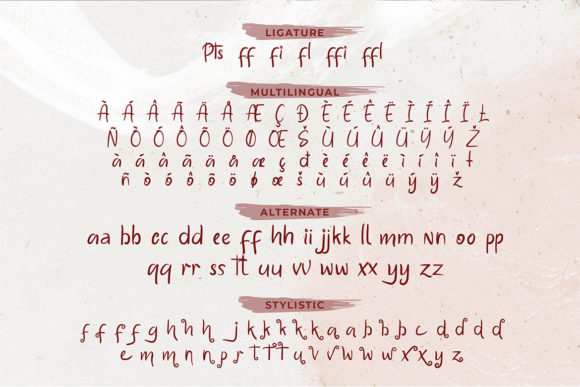 LIGATURE
Pts ff fi fl ffi ffl
MULTILINGUAL
À Á Â Ã Ä Å Æ Ç Ð È É Ê Ë Ì Í Î Ï Ł
Ñ Ò Ó Ô Õ Ö Ø Œ Š Ù Ú Û Ü Ÿ Ý Ž
à á â ã ä å æ ç đ è é ê ë ì í î ï ł
ñ ò ó ô õ ö ø œ š ù ú û ü ý ÿ ž
ALTERNATE
aa bb cc dd ee ff hh ii jjkk ll mm nn oo pp
qq rr ss tt uu vv ww xx yy zz
STYLISTIC
f f f f g h h h j k k k k a a b b b c d d d d
e m m n n p s t t t u v v w w w x x y z